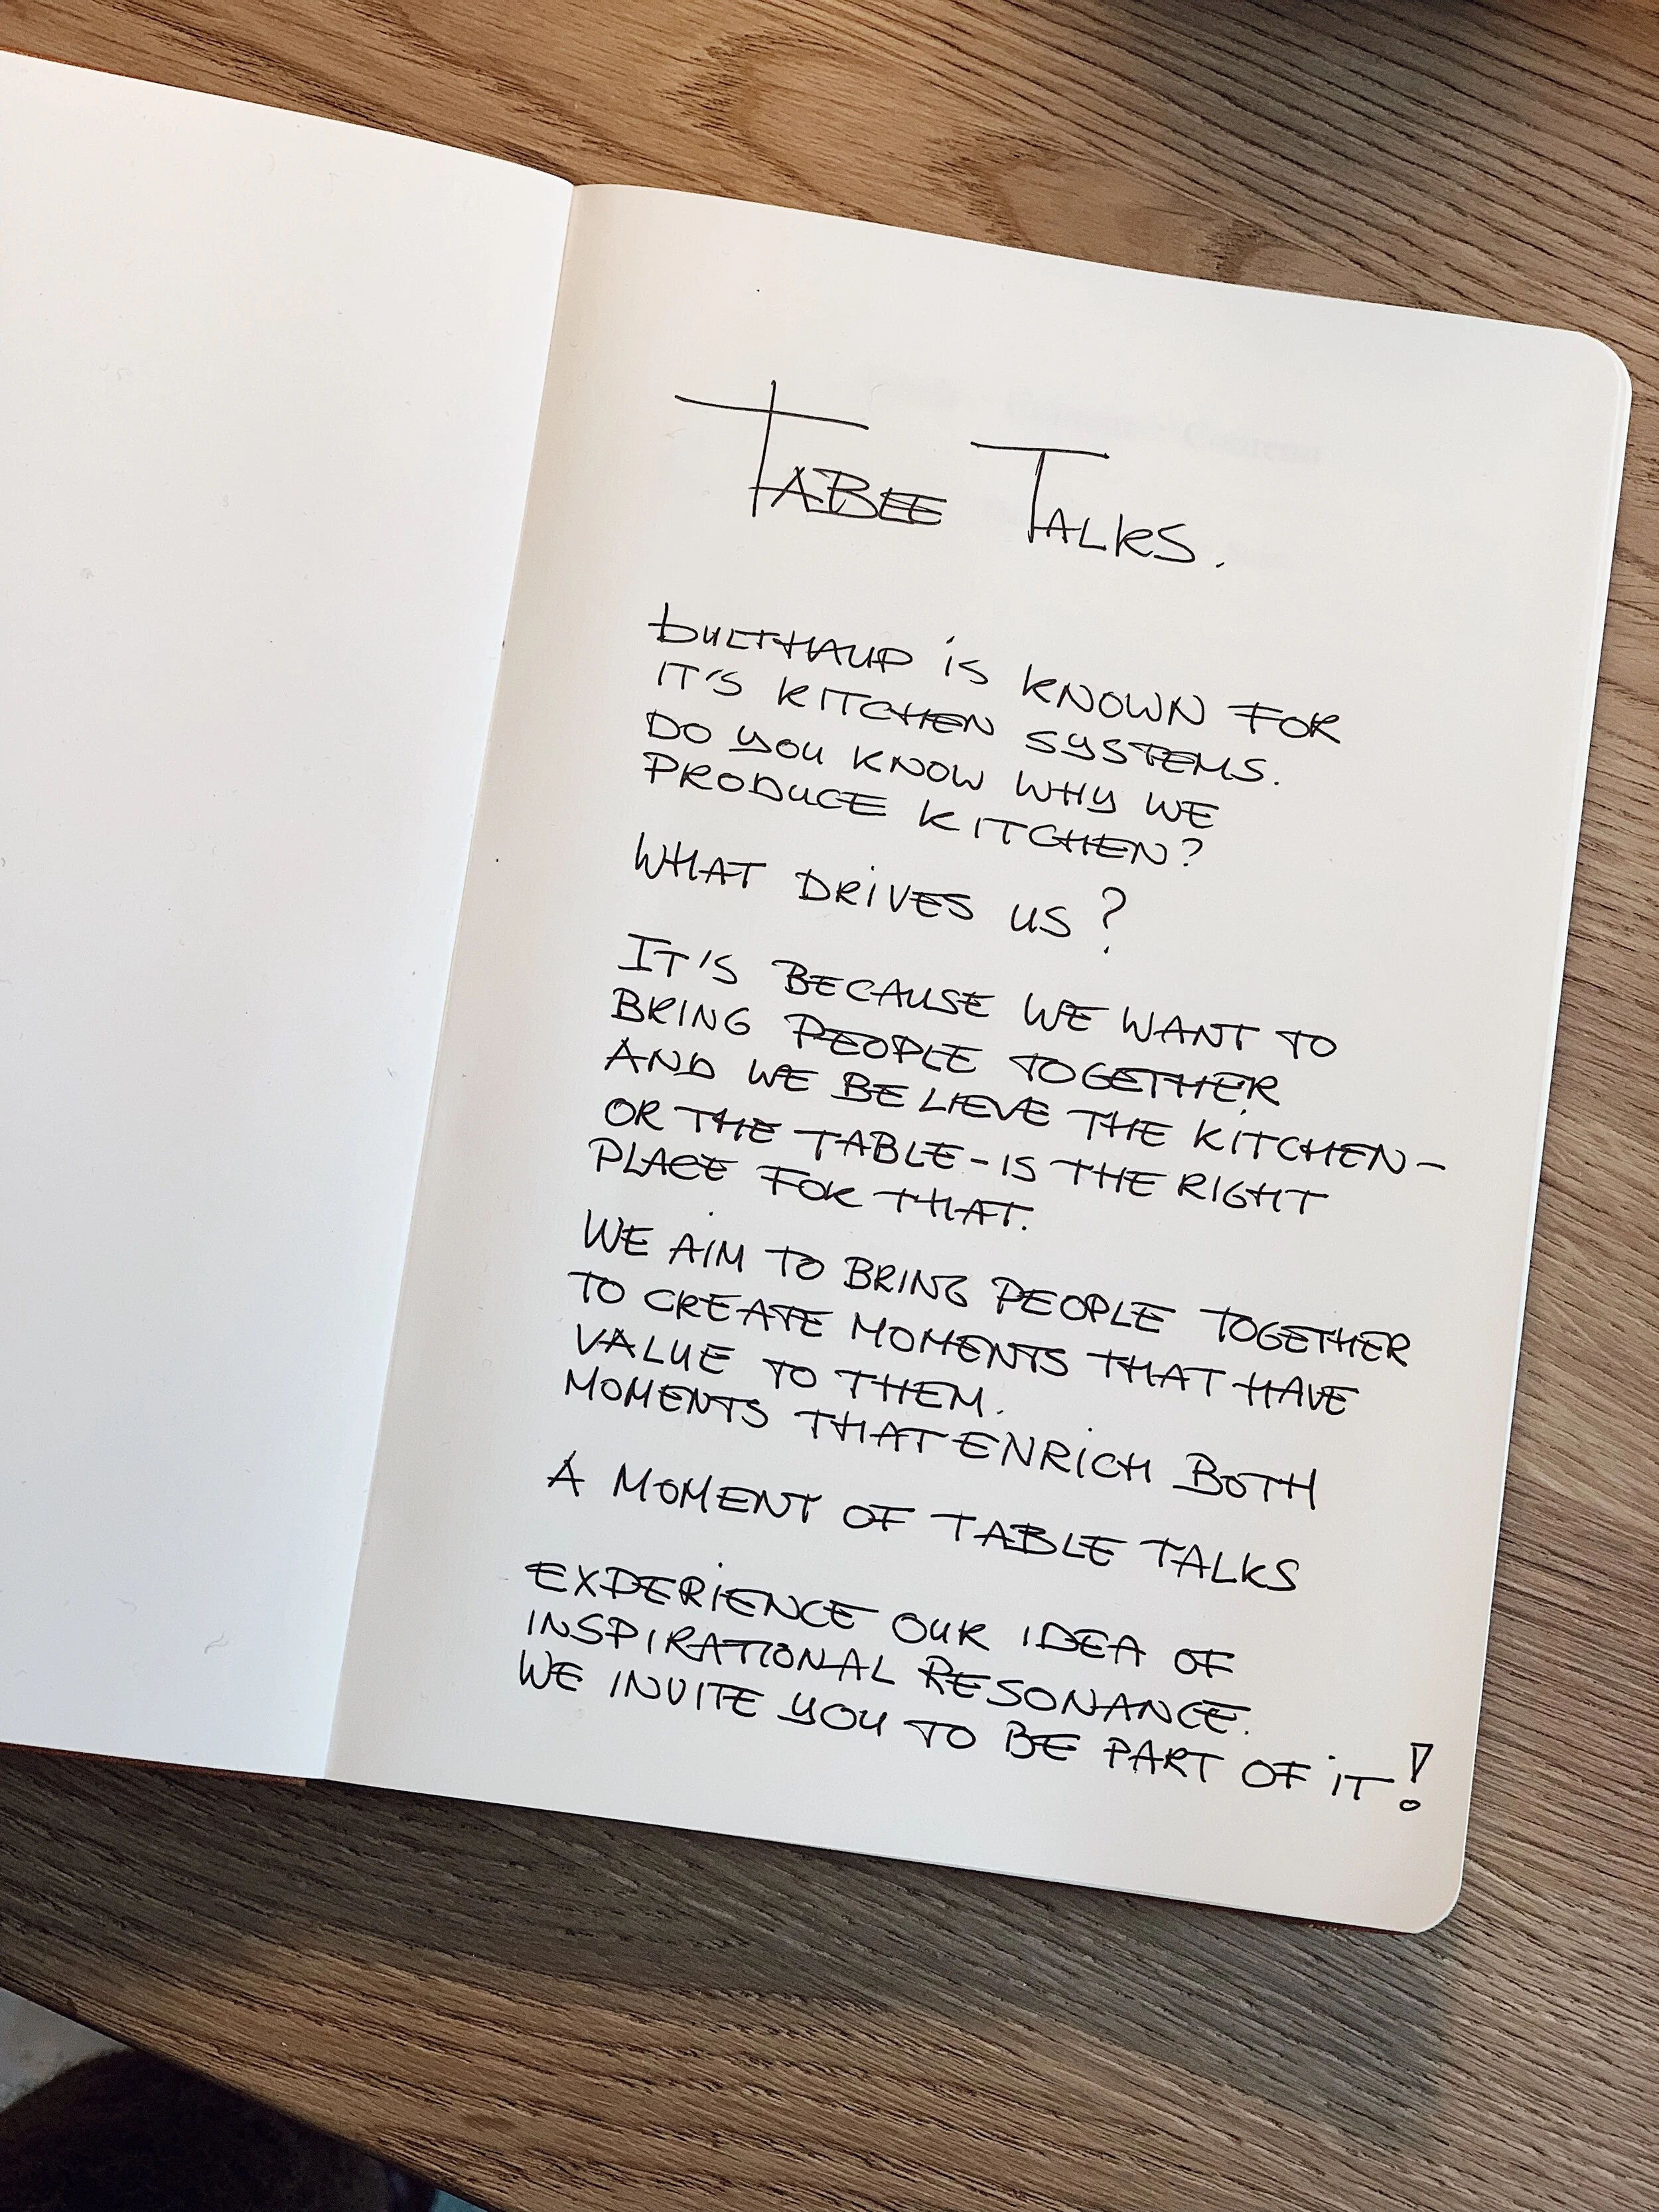 TABLE TALKS.
bULTHAUP iS KNOWN FOR
IT'S KITCHEN SYSTEMS.
DO YOU KNOW WHY WE
PRODUCE KITCHEN?
WHAT DRiVES US?
IT'S BECAUSE WE WANT TO
BRING PEOPLE TOGETHER
AND WE BELIEVE THE KITCHEN-
OR THE TABLE - IS THE RIGHT
PLACE FOR THAT.
WE AiM TO BRING PEOPLE TOGETHER
TO CREATE MOMENTS THAT HAVE
VALUE TO THEM.
MOMENTS THAT ENRiCH BOTH
A MOMENT OF TABLE TALKS
EXPERiENCE OUR IDEA OF
INSPIRATIONAL RESONANCE.
WE INVITE YOU TO BE PART OF iT!